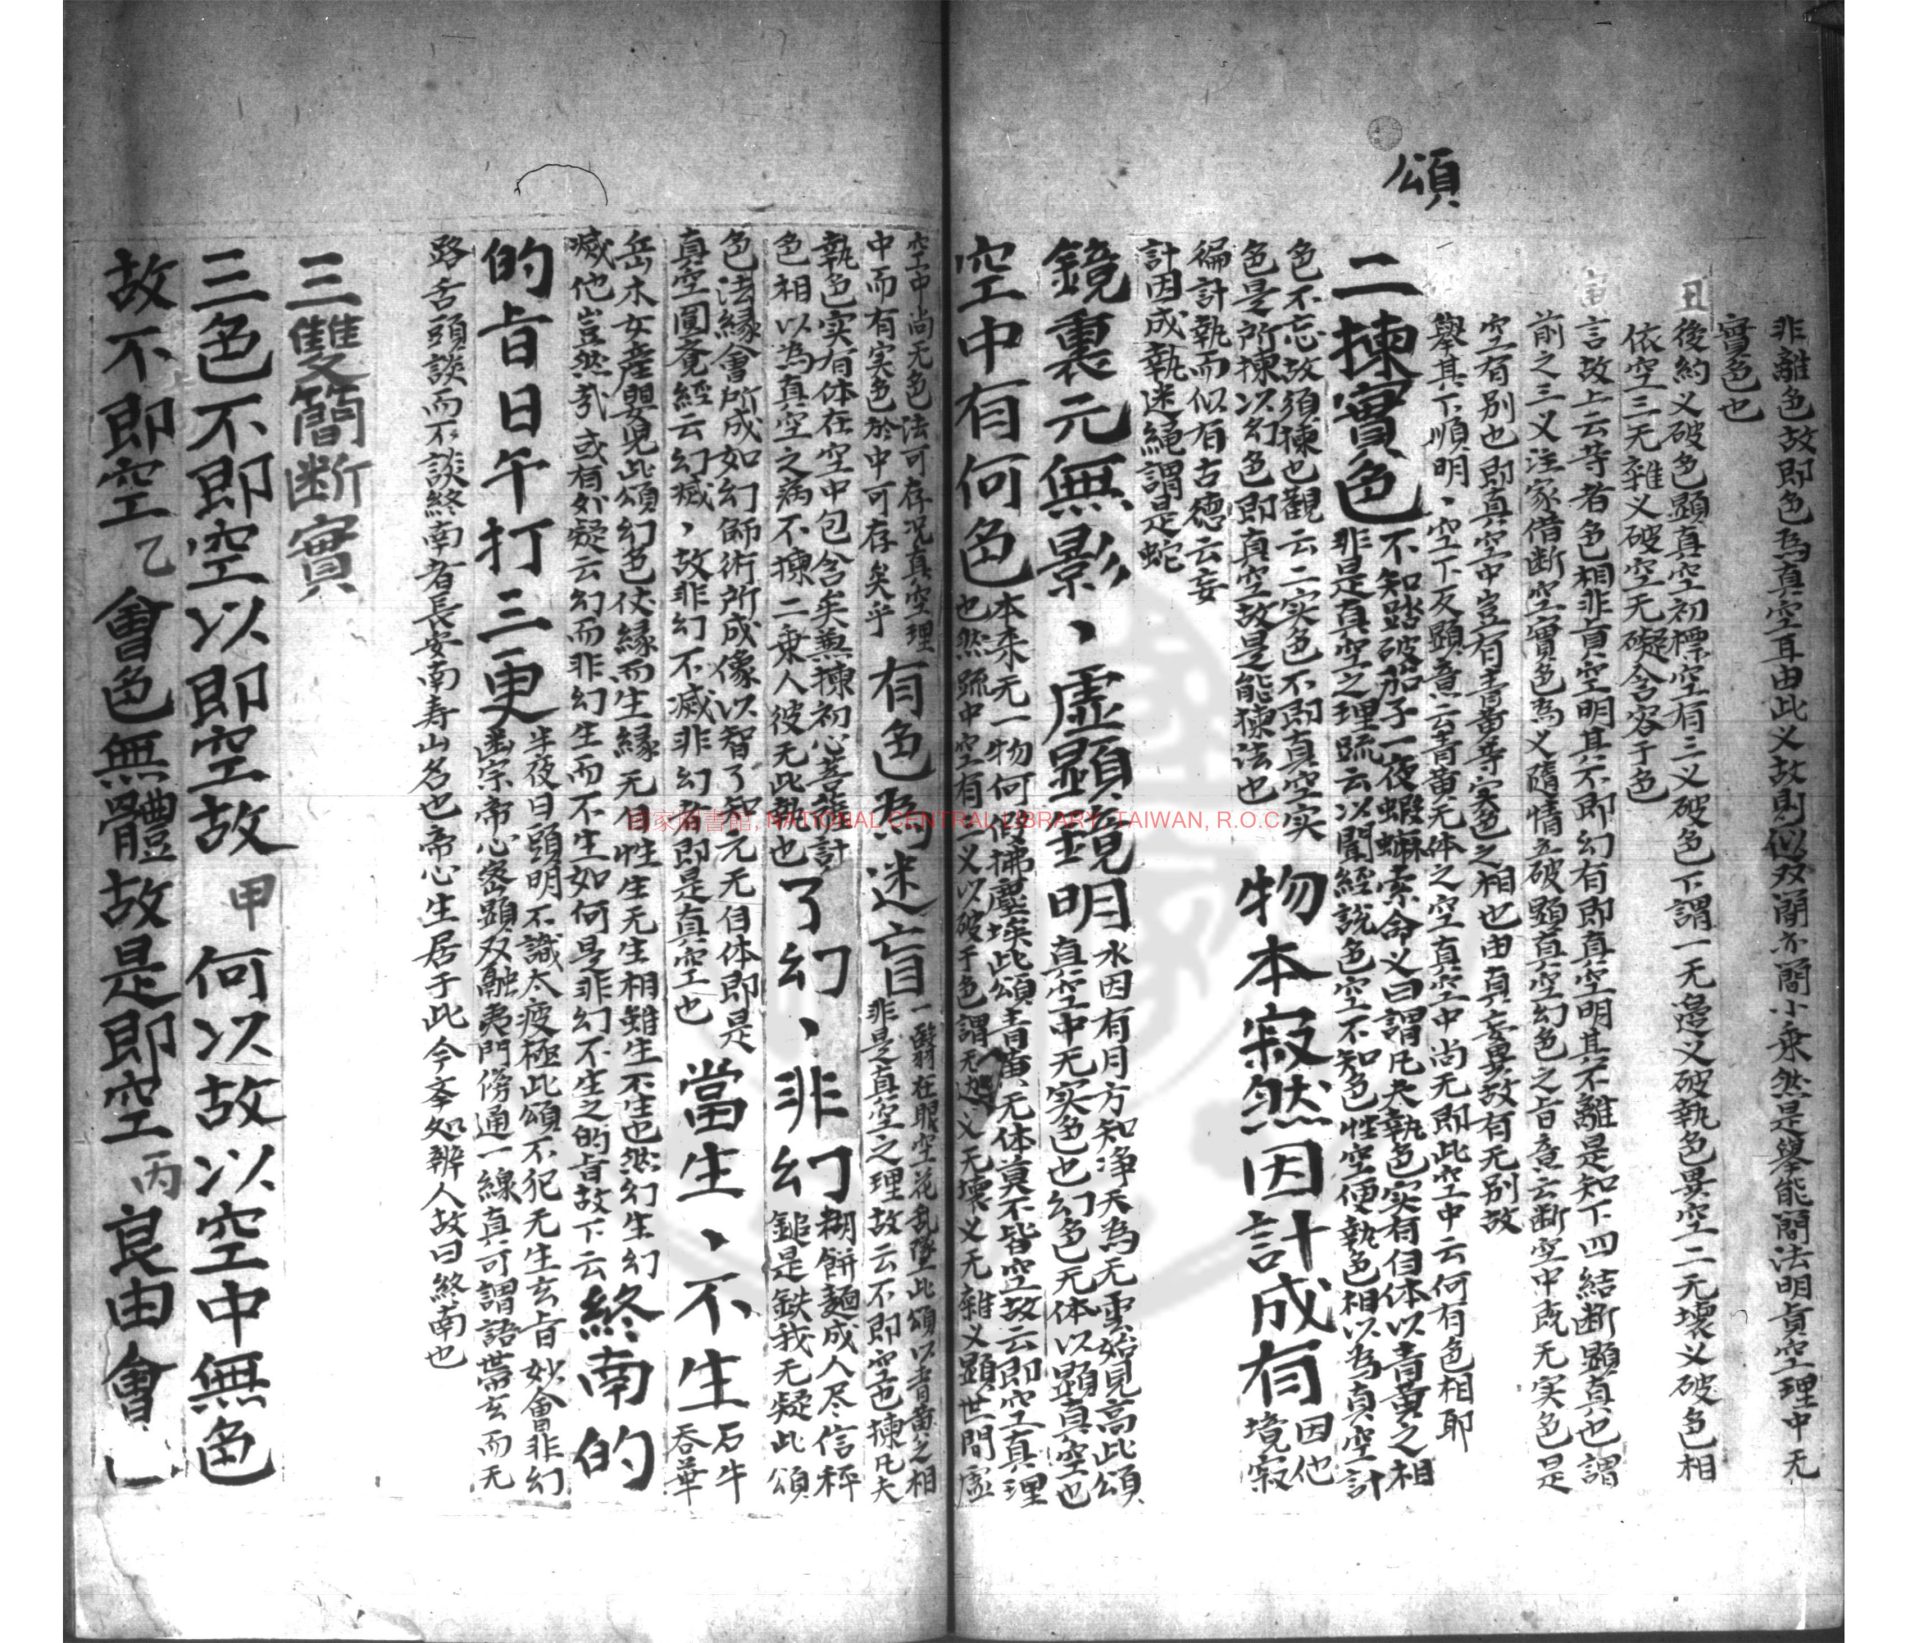 頌
非離色故即色為真空耳由此义故則似双簡亦簡小乗然是舉能簡法明真空理中无
實色也
丑
後約义破色顯真空初標空有三义破色下謂一无邊义破執色異空二无壞义破色相
依空三无雜义破空无礙含容于色
言故上云等者色相非真空明其不即幻有即真空明其不離是知下四結断顯真也謂
前之三义注家借断空實色為义隨情立破顯真空幻色之旨意云断空中既无实色是
空有别也即真空中豈有青黄等实色之相也由真妄異故有无别故
舉其下順明、空下反顯意云青黄无体之空真空中尚无即此空中云何有色相耶
二揀實色
不知踏破茄子一夜蝦蟆索命义曰謂凡夫執色实有自体以青黄之相
非是真空之理疏云以聞經説色空不知色性空便執色相以為真空計
色不忘故須揀也觀云二实色不即真空实
色是所揀以幻色即真空故是能揀法也
物本寂然因計成有
因他
境寂
徧計執而似有古德云妄
計因成執迷繩謂是蛇
鏡裏元無影、虚顯鏡明
水因有月方知净天為无雲始見高此頌
真空中无实色也幻色无体以顯真空也
空中有何色
本来无一物何得拂塵埃此頌青黄无体莫不皆空故云即空真理
也然䟽中空有三义以破于色謂无邊义无壞义无雜义顯世間虚
空中尚无色法可存况真空理
中而有实色於中可存矣乎
有色為迷盲
一翳在眼空花乱墜此頌以青黄之相
非是真空之理故云不即空也揀凡夫
執色实有体在空中包含矣兼揀初心菩薩計
色相以為真空之病不揀二乗人彼无此執也
了幻、非幻
糊餅麺成人尽信秤
鎚是鉄我无疑此頌
色法縁會所成如幻師術所成像以智了知元无自体即是
真空圓覺經云幻滅、故非幻不滅非幻者即是真空也
當生、不生
石牛
吞華
岳木女産嬰兒此頌幻色仗縁而生縁无自性生无生相雖生不生也然幻生幻
滅他豈然㢤或有外疑云幻而非幻生而不生如何是非幻不生之的旨故下云
終南的
的旨日午打三更
半夜日頭明不識太疲極此頌不犯无生玄旨妙會非幻
幽宗帝心密顯双融夷門傍通一線真可謂語帶玄而无
路舌頭談而不談終南者長安南寿山名也帝心生居于此今李処辨人故曰終南也
三雙簡断實
三色不即空以即空故 甲 何以故以空中無色
故不即空 乙 會色無體故是即空 丙 良由會